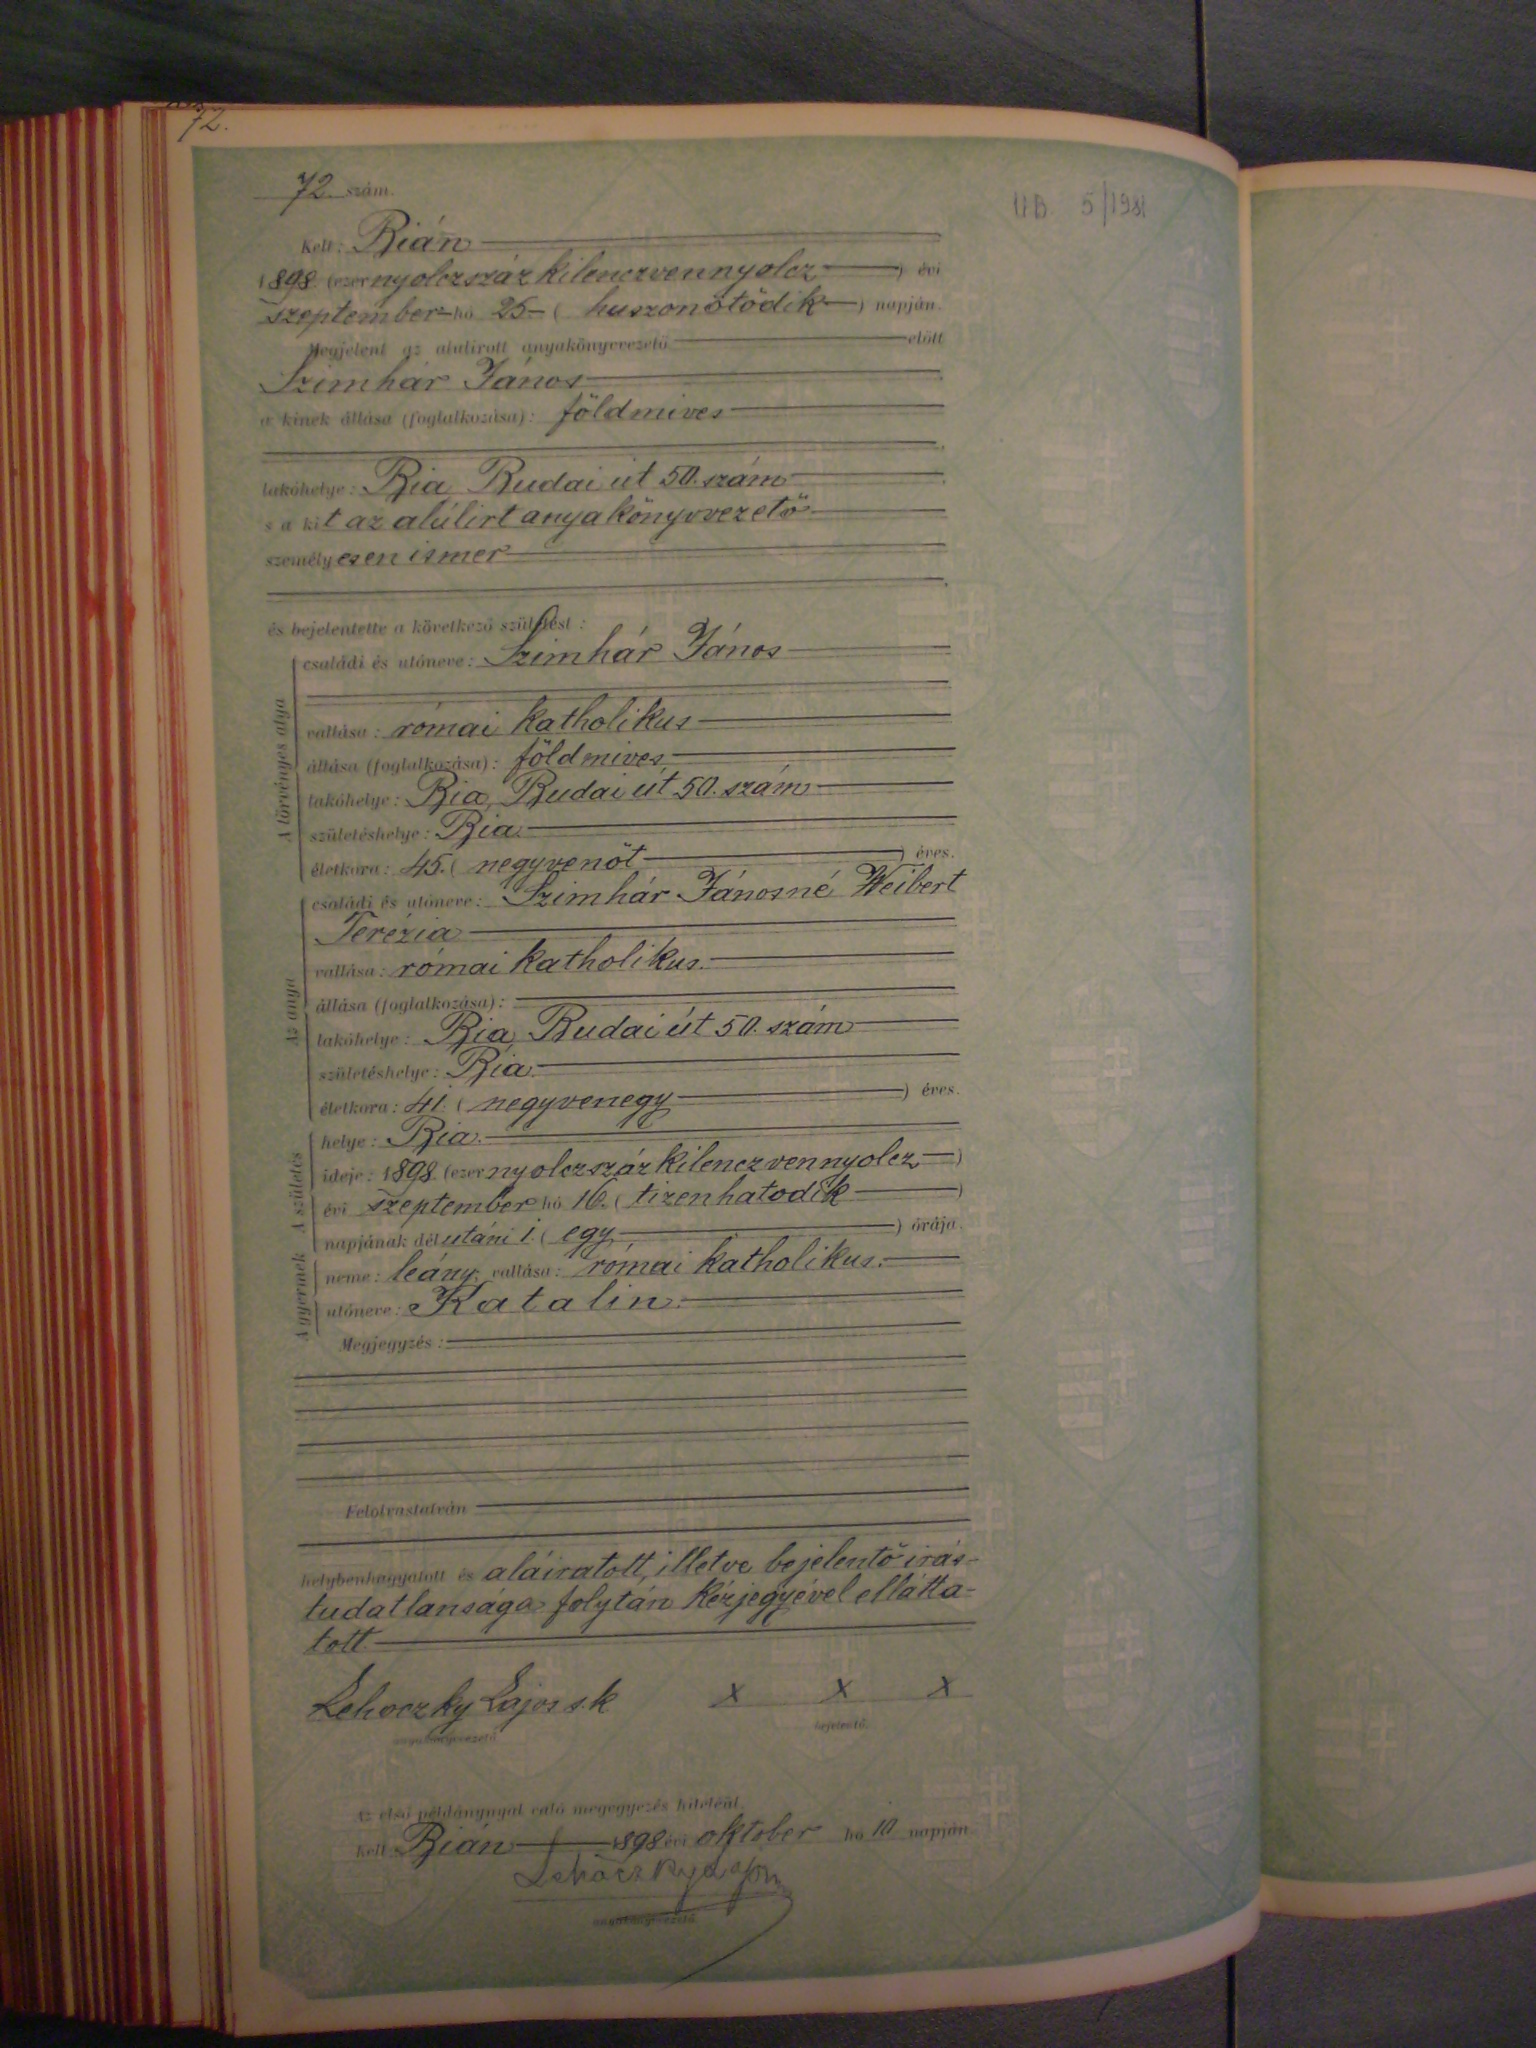 72.
72 szám.
UB 5/1981
Kelt: Bián
1898. (ezernyolczszáz kilenczvennyolcz) évi
szeptember hó 25 (huszonötödik) napján.
Megjelent az alulirott anyakönyvvezető előtt
Szimhár János
a kinek állása (foglalkozása): földmives
lakóhelye: Bia, Budai út 50. szám
s a kit az alúlirt anyakönyvvezető
személyesen ismer
és bejelentette a következő születést:
A törvényes atya
családi és utóneve: Szimhár János
vallása: római katholikus
állása (foglalkozása): földmives
lakóhelye: Bia, Budai út 50. szám
születéshelye: Bia.
életkora: 45. (negyvenöt) éves.
Az anya
családi és utóneve: Szimhár Jánosné Weibert
Terézia
vallása: római katholikus.
állása (foglalkozása):
lakóhelye: Bia, Budai út 50. szám
születéshelye: Bia.
életkora: 41. (negyvenegy) éves.
A születés
helye: Bia.
ideje: 1898. (ezernyolczszáz kilenczvennyolcz)
évi szeptember hó 16. (tizenhatodik)
napjának délutáni 1. (egy) órája.
A gyermek
neme: leány, vallása: római katholikus.
utóneve: Katalin.
Megjegyzés:
Felolvastatván
helybenhagyatott és aláiratott, illetve bejelentő irás-
tudatlansága folytán kézjegyével ellátta-
tott.
Lehoczky Lajos s.k x x x
anyakönyvvezető bejelentő.
Az első példánynyal való megegyezés hiteléül.
Kelt Bián 1898 évi oktober hó 10 napján
Lehoczky Lajos
anyakönyvvezető